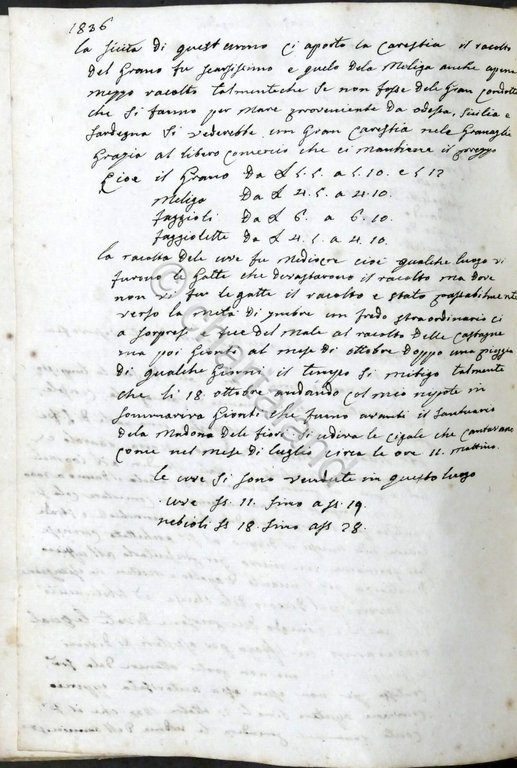 1836
la sicita di quest anno ci aporto la carestia il racolto
del Grano fu scarsissimo e quelo dela Meliga anche apena
meppo racolto talmenteche se non fosse dele Gran condotte
che si fanno per Mare proveniente da odessa, Sicilia e
Sardegna si vederebbe un Gran carestia nele Granaglie
Grazia al libero comercio che ci mantiene il preppo
Cioe il Grano Da £ 5. 5. a 5. 10. e 5 12
Meliga Da £ 4. 5. a 4. 10.
faggioli Da £ 6. a 6. 10.
faggiolette Da £ 4. 5. a 4. 10.
la racolta dele uve fu Mediocre cioe qualche luogo vi
furono le Gatte che devastarono il racolto ma dove
non vi fu le gatte il racolto e stato
verso la metà di un fredo straordinario ci
a sorpresi fece del Male al racolto delle castagne
ma poi Gionti al mese di ottobre doppo una pioggia
di qualche Giorni il tempo si mitigo talmente
che li 18. ottobre andando col mio nepote in
Sommariva Gionti che fumo avanti il Santuario
dela Madona dele fiore si udiva le cigale che cantavano
come nel mese di luglio circa le ore 11. mattino.
le uve si sono vendute in questo luogo
uve ss. 11. sino a ss. 19.
nebioli ss 18. sino a ss. 28.
© capitaland